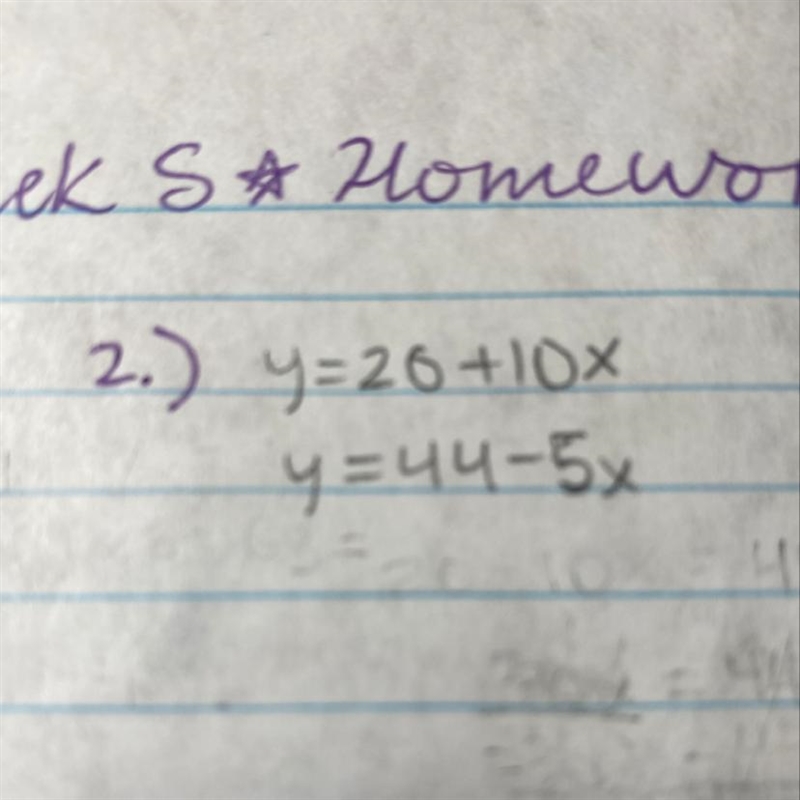 ek S☆ Homewor
2.) y=26+10x
y=44-5x